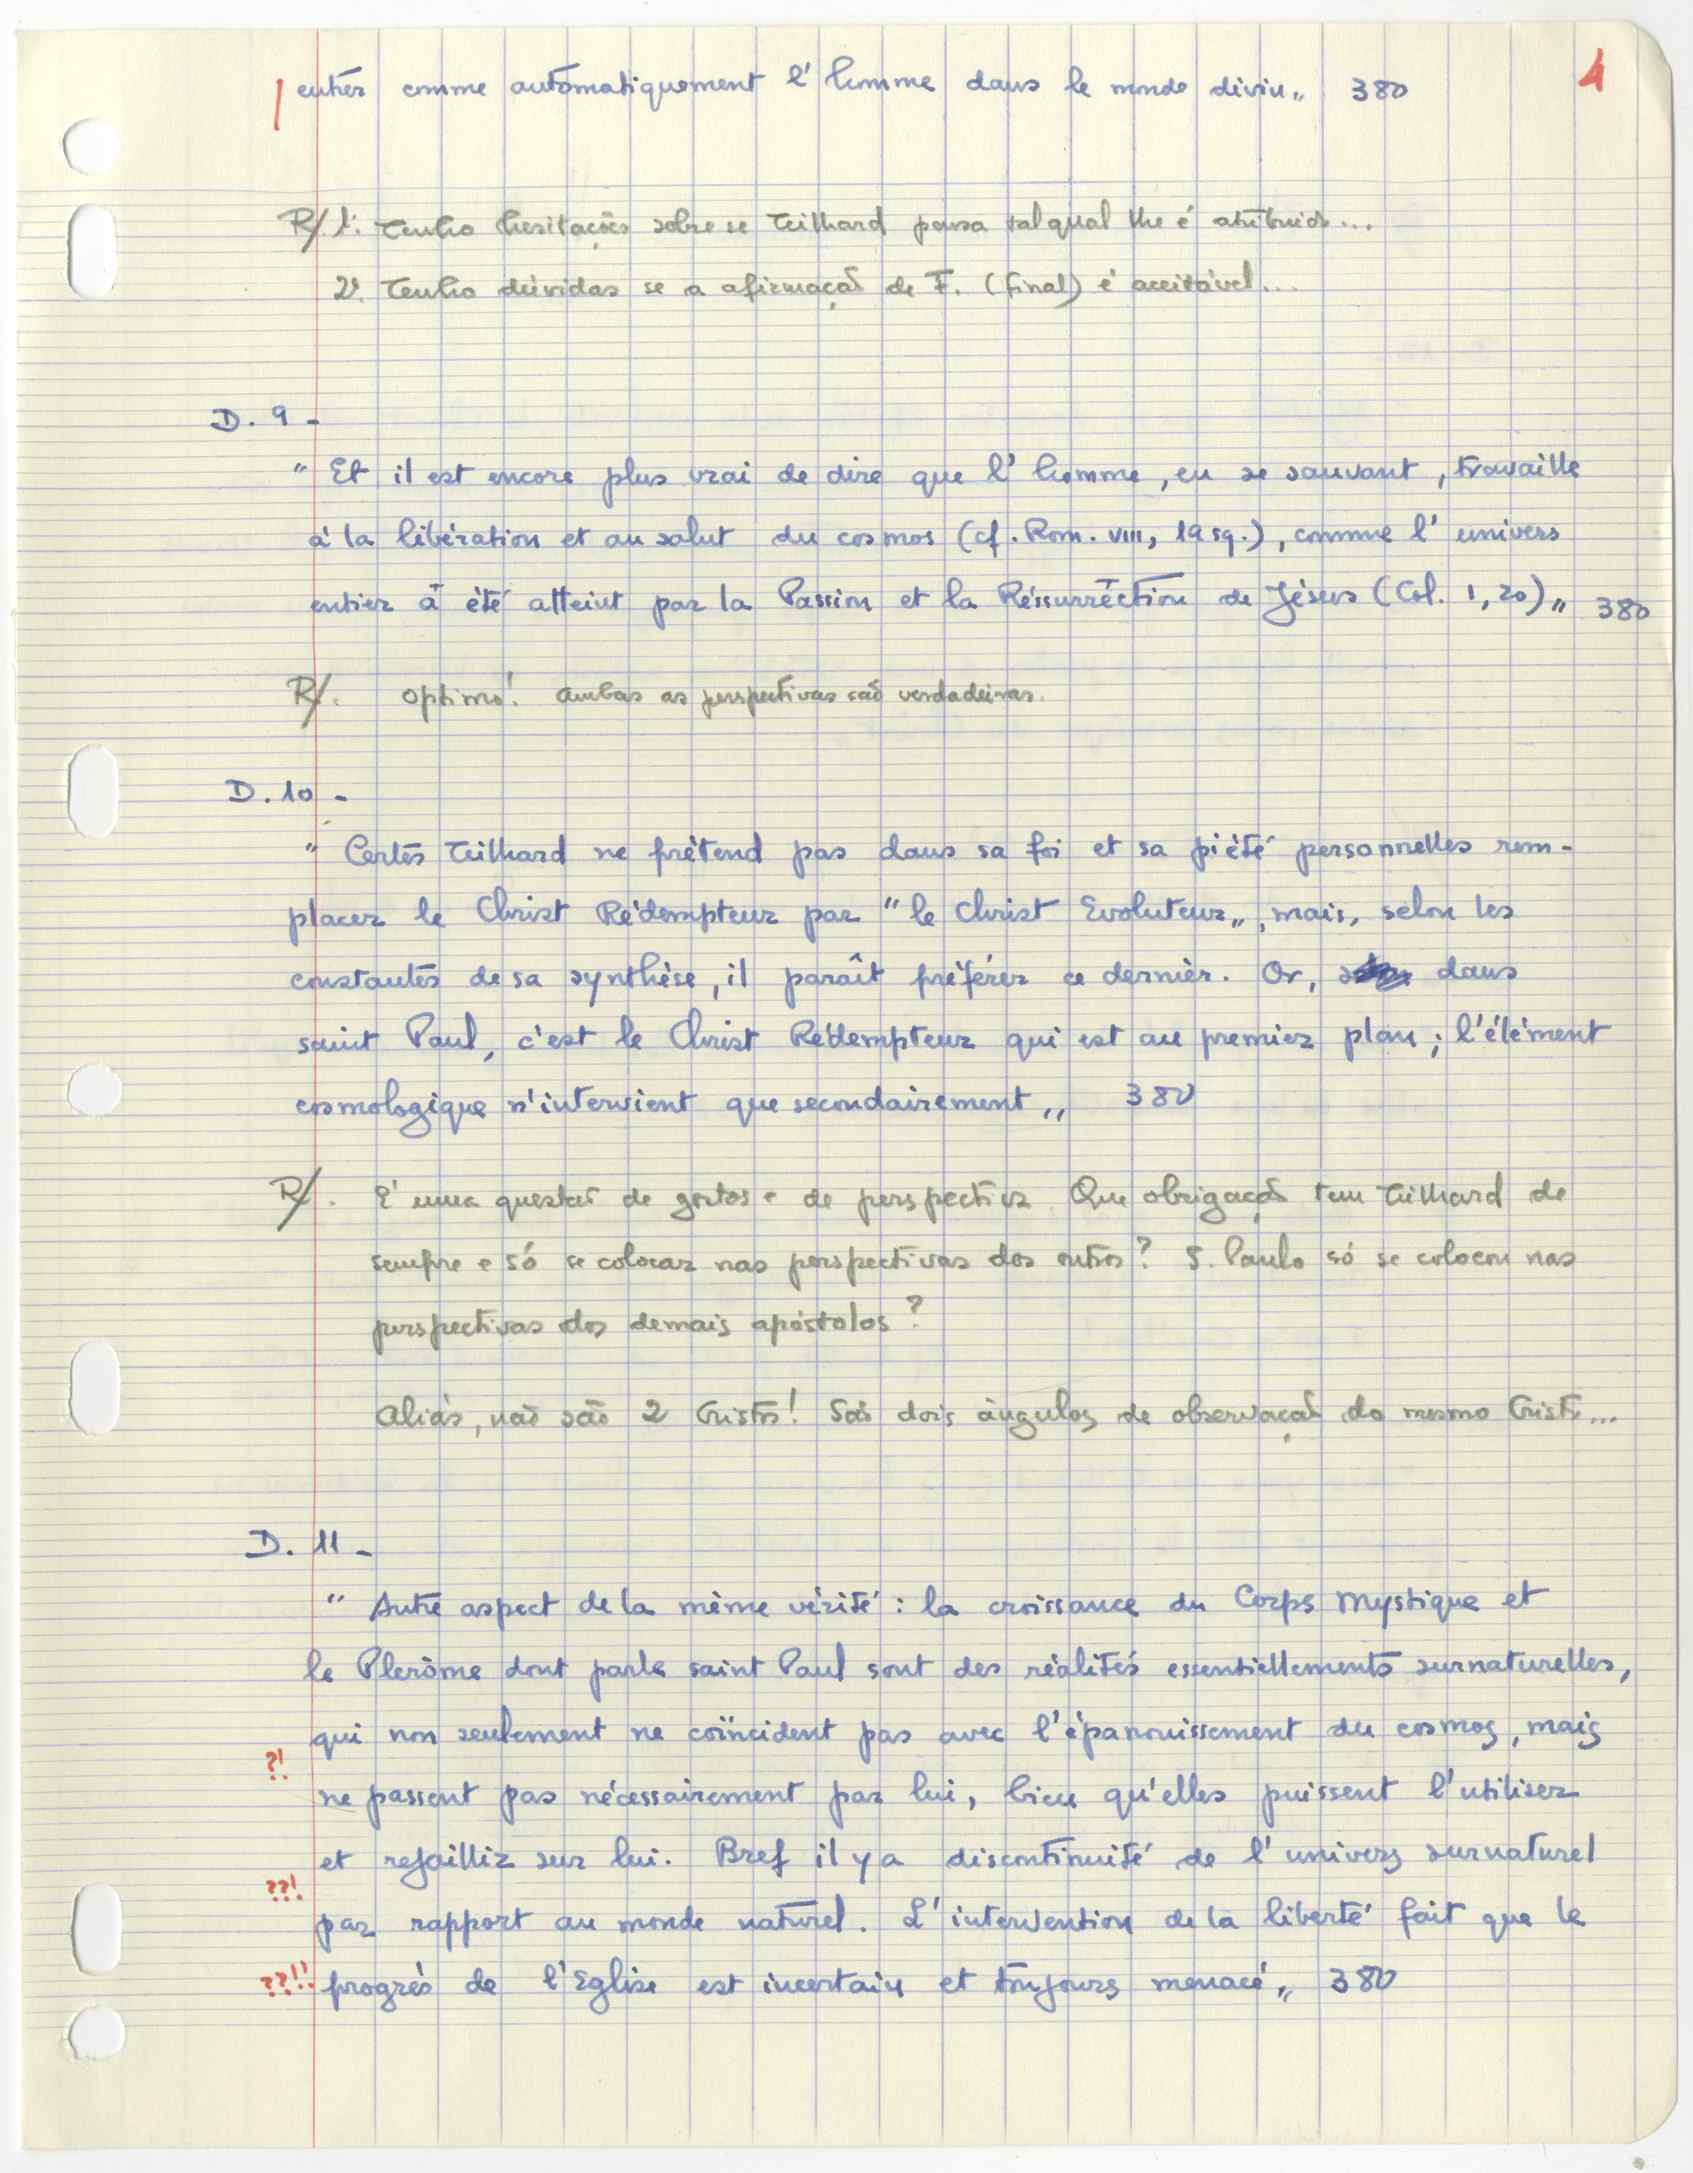 entrer comme automatiquement l'homme dans le monde divin„ 380
4
R/. 1º. Tenho hesitações sobre se Teilhard pensa tal qual lhe é atribuido...
2º. Tenho dúvidas se a afirmação de F. (final) é aceitável...
D. 9 -
" Et il est encore plus vrai de dire que l'homme, en se sauvant, travaille
à la libération et au salut du cosmos (cf. Rom. VIII, 19 sq.), comme l'univers
entier a été atteint par la Passion et la Réssurrection de Jésus (Col. 1, 20)„ 380
R/. Optimo! Ambas as perspectivas são verdadeiras.
D. 10 -
" Certes Teilhard ne prétend pas dans sa foi et sa piété personnelles rem-
placer le Christ Rédempteur par "le Christ Evoluteur„, mais, selon les
constantes de sa synthèse, il paraît préférer ce dernier. Or, dans
saint Paul, c'est le Christ Rédempteur qui est au premier plan ; l'élément
cosmologique n'intervient que secondairement „ 380
R/. E' uma questão de gostos e de perspectiva. Que obrigação tem Teilhard de
sempre e só se colocar nas perspectivas dos outros? S. Paulo só se colocou nas
perspectivas dos demais apóstolos?
Aliás, não são 2 Cristos! São dois ângulos de observação do mesmo Cristo...
D. 11 -
" Autre aspect de la même vérité : la croissance du Corps Mystique et
le Plerôme dont parle saint Paul sont des réalités essentiellements surnaturelles,
qui non seulement ne coïncident pas avec l'épanouissement du cosmos, mais
?! ne passent pas nécessairement par lui, bien qu'elles puissent l'utiliser
et rejaillir sur lui. Bref il y a discontinuité de l'univers surnaturel
??! par rapport au monde naturel. L'intervention de la liberté fait que le
??!! progrés de l'Eglise est incertain et toujours menacé„ 380